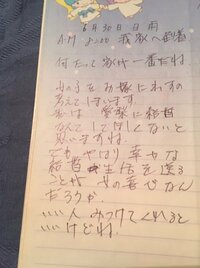 6月30日 日 雨
AM 8:00 我家へ到着
何たって家が一番だね
の子をお嫁にわすの
考えてしまいます。
私は 愛梨に結婚
なんてしてほしくないと
思いますね
でもやはり幸せな
結婚生活を送る
ことが女の喜びなん
だろうか
いい人みつけてくれると
いいけどね.